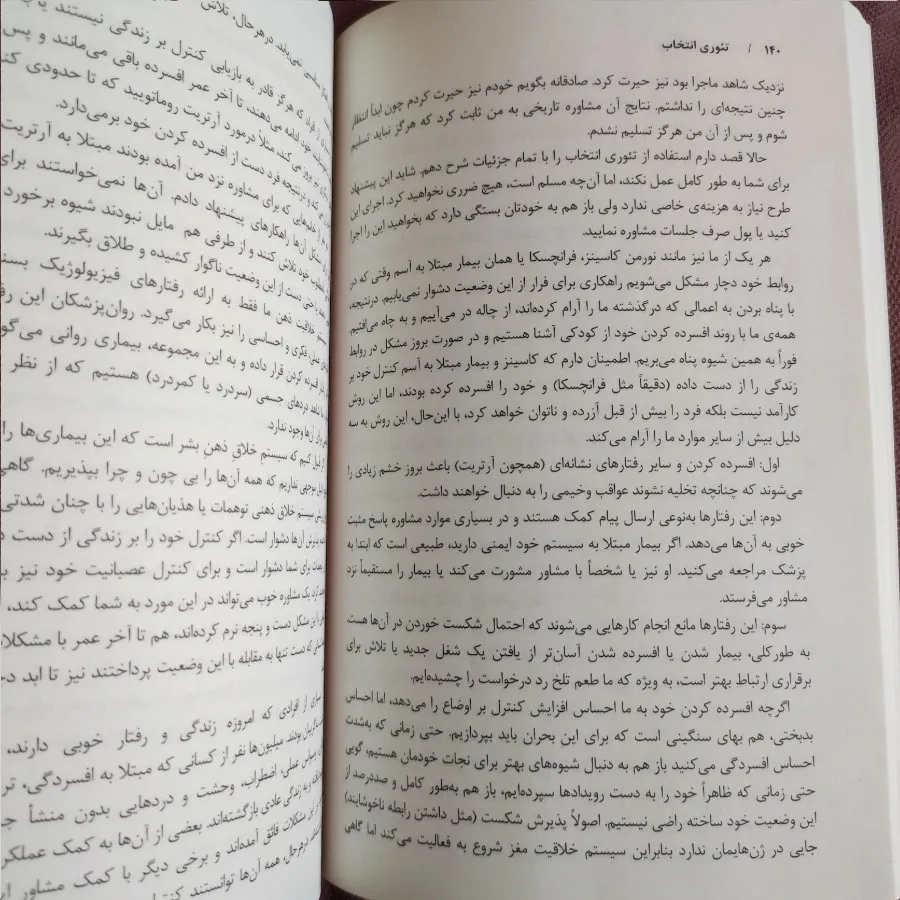 ۱۴۰ / تئوری انتخاب
نزدیک شاهد ماجرا بود نیز حیرت کرد. صادقانه بگویم خودم نیز حیرت کردم چون ابداً انتظار
چنین نتیجه‌ای را نداشتم. نتایج آن مشاوره تاریخی به من ثابت کرد که هرگز نباید تسلیم
شوم و پس از آن من هرگز تسلیم نشدم.
حالا قصد دارم استفاده از تئوری انتخاب را با تمام جزئیات شرح دهم. شاید این پیشنهاد
برای شما به طور کامل عمل نکند، اما آن‌چه مسلم است، هیچ ضرری نخواهید کرد. اجرای این
طرح نیاز به هزینه‌ی خاصی ندارد ولی باز هم به خودتان بستگی دارد که بخواهید این را اجرا
کنید یا پول صرف جلسات مشاوره نمایید.
هر یک از ما نیز مانند نورمن کاسینز، فرانچسکا یا همان بیمار مبتلا به آسم وقتی که در
روابط خود دچار مشکل می‌شویم راهکاری برای فرار از این وضعیت دشوار نمی‌یابیم. درنتیجه،
با پناه بردن به اعمالی که درگذشته ما را آرام کرده‌اند، از چاله در می‌آییم و به چاه می‌افتیم.
همه‌ی ما با روند افسرده کردن خود از کودکی آشنا هستیم و در صورت بروز مشکل در روابط
فوراً به همین شیوه پناه می‌بریم. اطمینان دارم که کاسینز و بیمار مبتلا به آسم کنترل خود بر
زندگی را از دست داده (دقیقاً مثل فرانچسکا) و خود را افسرده کرده بودند، اما این روش
کارآمد نیست بلکه فرد را بیش از قبل آزرده و ناتوان خواهد کرد، با این‌حال، این روش به سه
دلیل بیش از سایر موارد ما را آرام می‌کند.
اول: افسرده کردن و سایر رفتارهای نشانه‌ای (همچون آرتریت) باعث بروز خشم زیادی را
می‌شوند که چنانچه تخلیه نشوند عواقب وخیمی را به دنبال خواهند داشت.
دوم: این رفتارها به‌نوعی ارسال پیام کمک هستند و در بسیاری موارد مشاوره پاسخ مثبت
خوبی به آن‌ها می‌دهد. اگر بیمار مبتلا به سیستم خود ایمنی دارید، طبیعی است که ابتدا به
پزشک مراجعه می‌کنید. او نیز یا شخصاً با مشاور مشورت می‌کند یا بیمار را مستقیماً نزد
مشاور می‌فرستد.
سوم: این رفتارها مانع انجام کارهایی می‌شوند که احتمال شکست خوردن در آن‌ها هست.
به طورکلی، بیمار شدن یا افسرده شدن آسان‌تر از یافتن یک شغل جدید یا تلاش برای
برقراری ارتباط بهتر است، به ویژه که ما طعم تلخ رد درخواست را چشیده‌ایم.
اگرچه افسرده کردن خود به ما احساس افزایش کنترل بر اوضاع را می‌دهد، اما احساس
بدبختی، هم بهای سنگینی است که برای این بحران باید بپردازیم. حتی زمانی که به‌شدت
احساس افسردگی می‌کنید باز هم به دنبال شیوه‌های بهتر برای نجات خودمان هستیم، گویی
حتی زمانی که ظاهراً خود را به دست رویدادها سپرده‌ایم، باز هم به‌طور کامل و صددرصد از
این وضعیت خود ساخته راضی نیستیم. اصولاً پذیرش شکست (مثل داشتن رابطه ناخوشایند)
جایی در ژن‌هایمان ندارد بنابراین سیستم خلاقیت مغز شروع به فعالیت می‌کند اما گاهی
درهرحال، تلاش
که هرگز قادر به بازیابی کنترل بر زندگی نیستند
ادامه می‌دهند، تا آخر عمر افسرده باقی می‌مانند و پس
مثلاً درمورد آرتریت روماتویید که تا حدودی
درنتیجه فرد دست از افسرده کردن خود برمی‌دارد.
که برای مشاوره نزد من آمده بودند مبتلا به آرتریت
آن‌ها راهکارهای پیشنهاد دادم. آن‌ها نمی‌خواستند برای
خود تلاش کنند و از طرفی هم مایل نبودند شیوه برخورد
دست از این وضعیت ناگوار کشیده و طلاق بگیرند.
خلاقیت ذهن ما فقط به ارائه رفتارهای فیزیولوژیک
فکری و احساسی را نیز بکار می‌گیرد. روان‌پزشکان این
افسرده کردن قرار داده و به این مجموعه، بیماری روانی
دردهای جسمی (سردرد یا کمردرد) هستیم که از نظر
آن‌ها وجود ندارد.
کنیم که سیستم خلاق ذهنِ بشر است که این بیماری‌ها را
موجهی نداریم که همه آن‌ها را بی چون و چرا بپذیریم. گاهی
سیستم خلاق ذهنی توهمات یا هذیان‌هایی را با چنان شدتی
آن‌ها دشوار است. اگر کنترل خود را بر زندگی از دست
برای شما دشوار است و برای کنترل عصبانیت خود نیز
یک مشاوره خوب می‌تواند در این مورد به شما کمک کند،
این مشکل دست و پنجه نرم کرده‌اند، هم تا آخر عمر با
که دست تنها به مقابله با این وضعیت پرداختند نیز تا ابد
از افرادی که امروزه زندگی و رفتار خوبی دارند،
بودند. میلیون‌ها نفر از کسانی که مبتلا به افسردگی،
عملی، اضطراب، وحشت و دردهایی بدون منشأ
و به زندگی عادی بازگشته‌اند. بعضی از آن‌ها به کمک
مشکلات فائق آمده‌اند و برخی دیگر با کمک مشاور
درهرحال، همه آن‌ها توانستند